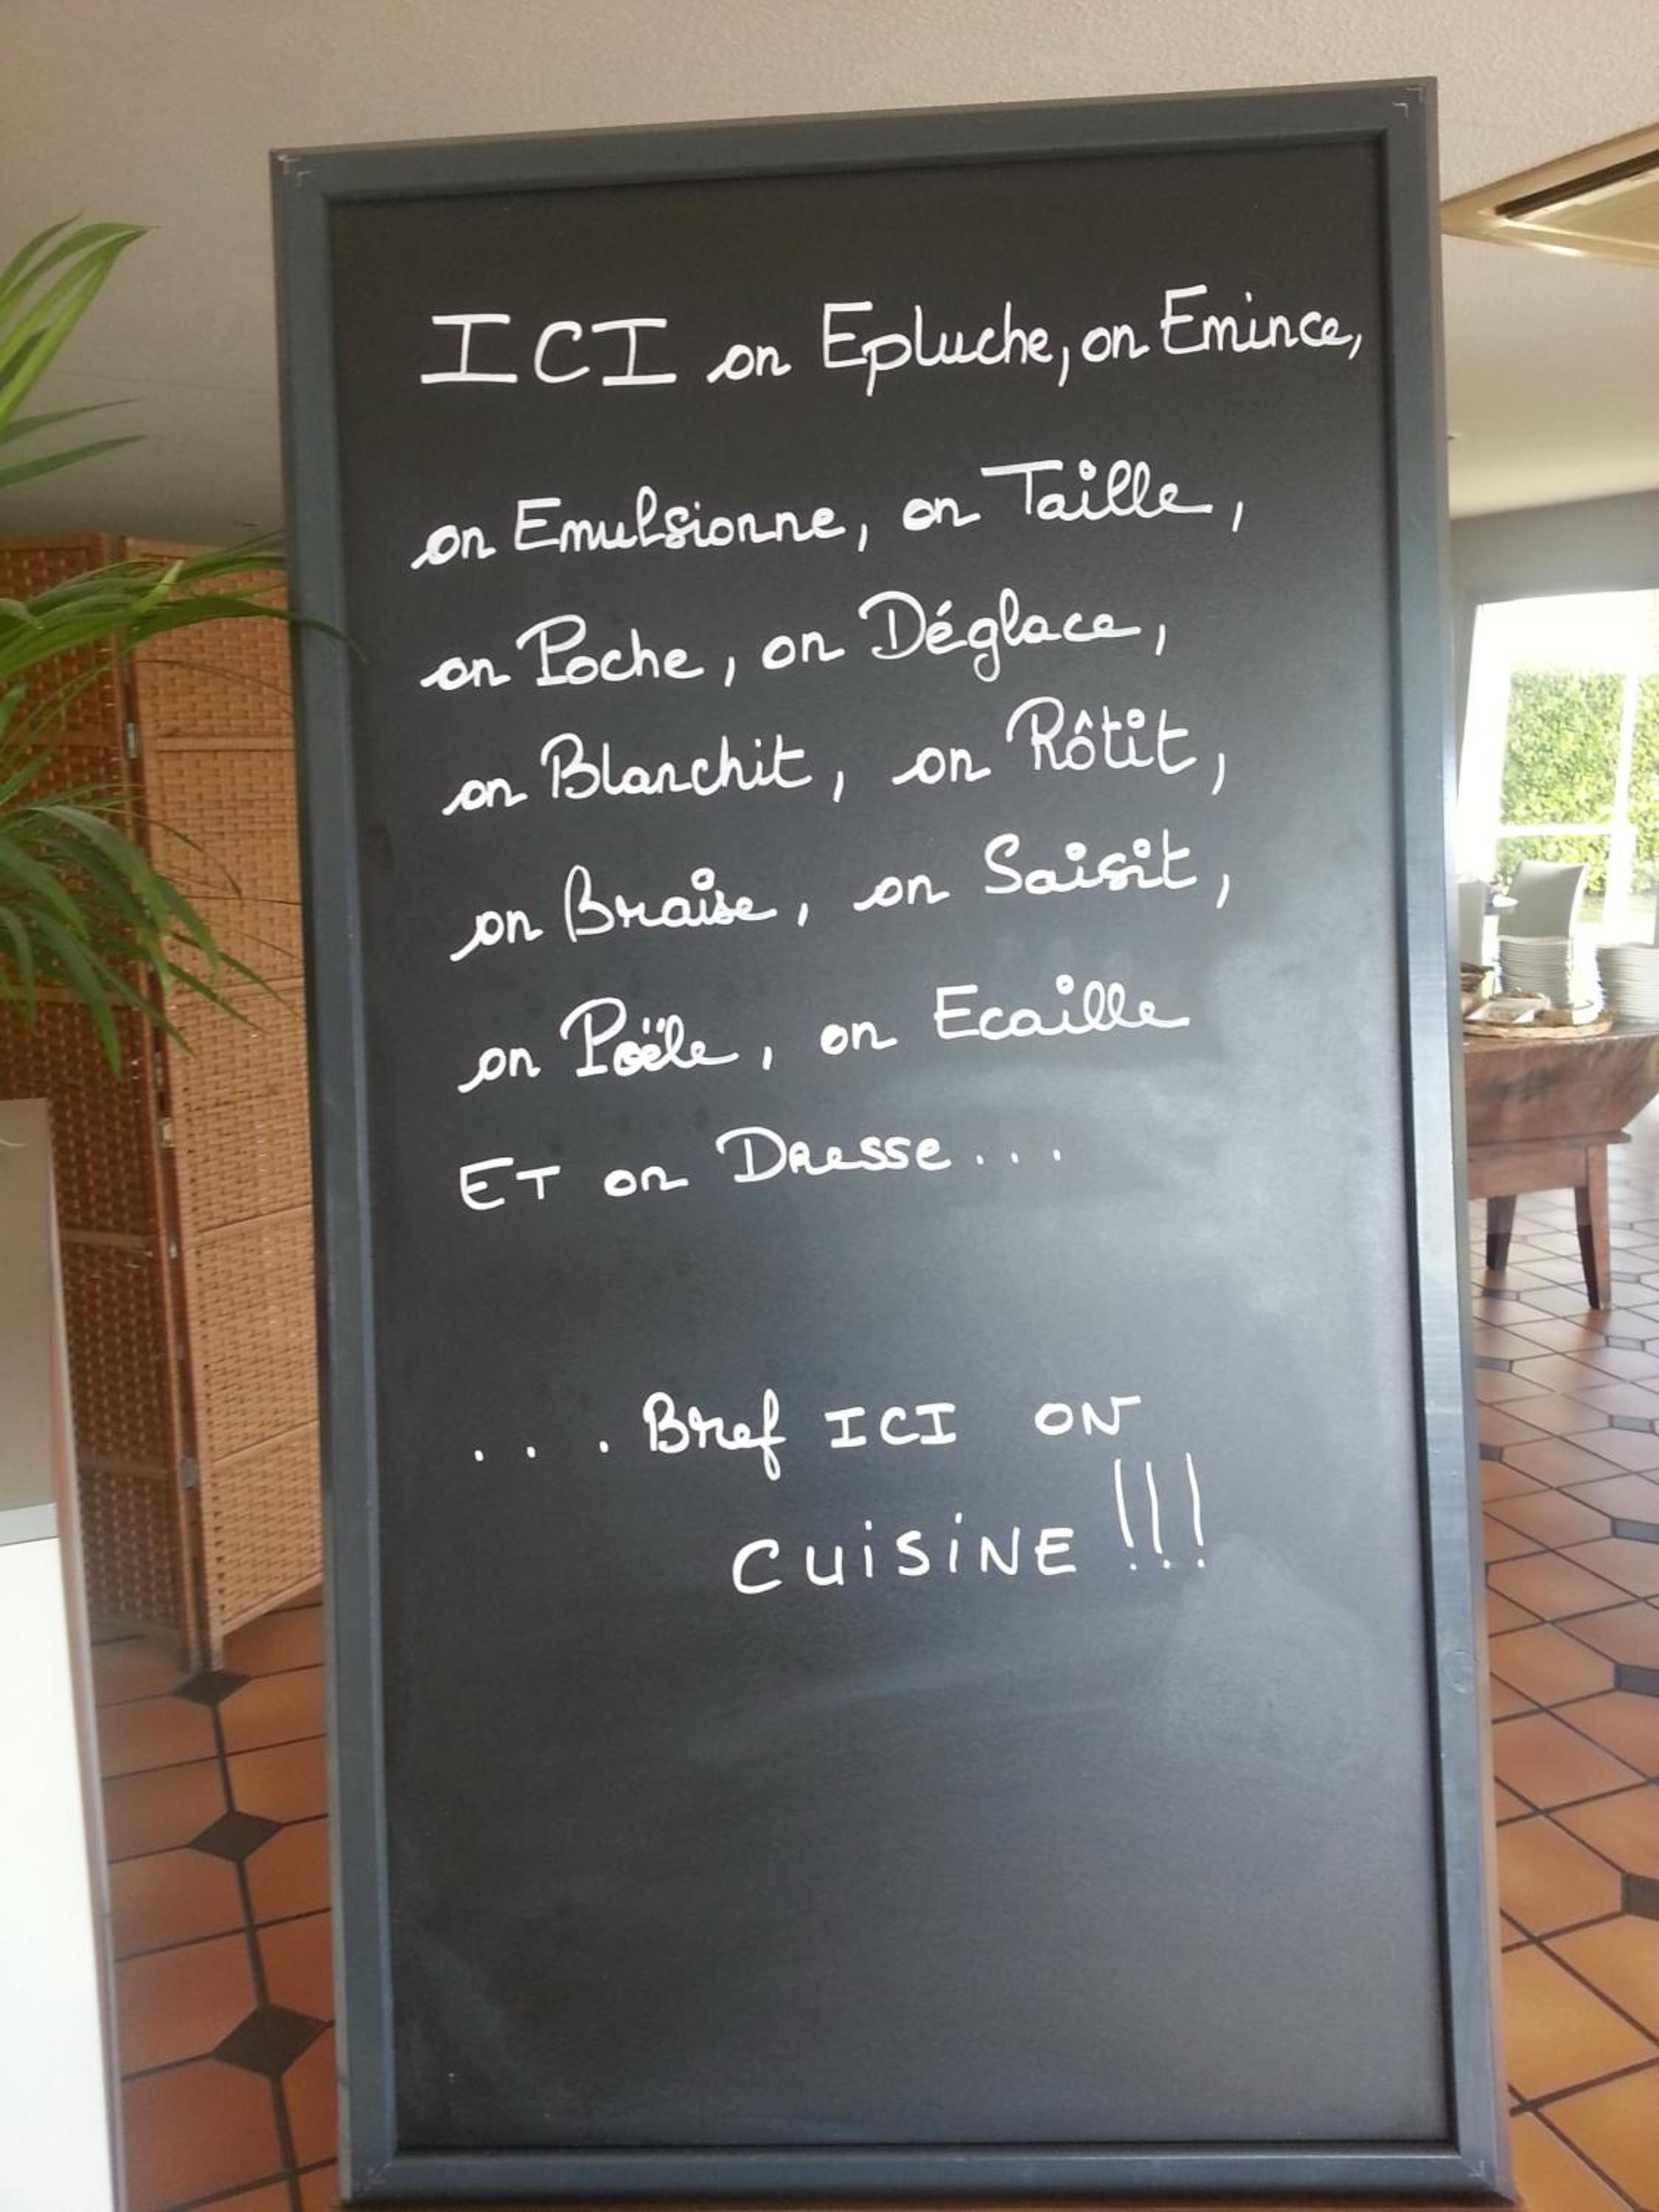 ICI on Epluche, on Emince,
on Emulsionne, on Taille,
on Poche, on Déglace,
on Blanchit, on Rôtit,
on Braise, on Saisit,
on Poële, on Ecaille
ET on Dresse...
...Bref ICI ON
CUiSiNE !!!